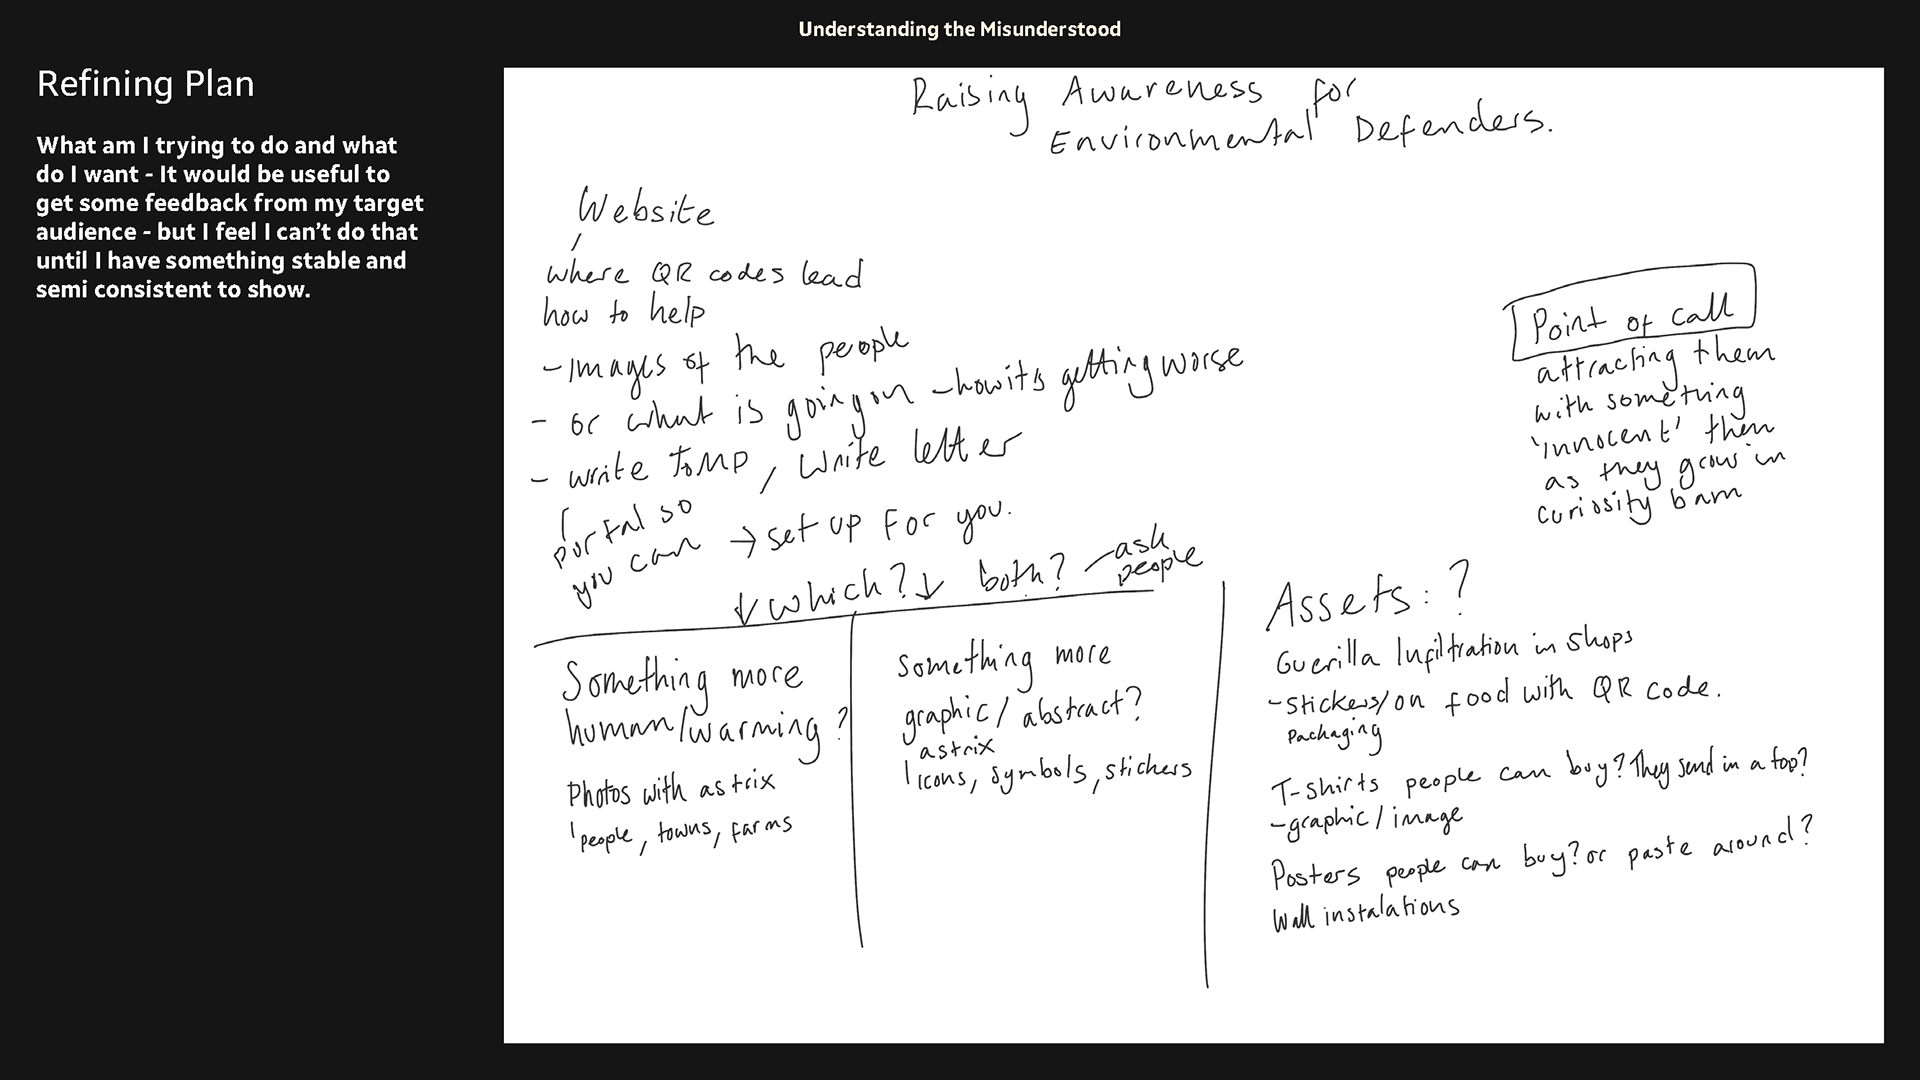 Understanding the Misunderstood
Refining Plan
What am I trying to do and what
do I want - It would be useful to
get some feedback from my target
audience - but I feel I can't do that
until I have something stable and
semi consistent to show.
Raising Awareness for
Environmental Defenders.
Website
where QR codes lead
how to help
- Images of the people
- or what is going on - how its getting worse
- write to MP, write letter
portal so
you can → set up for you.
↓ which? ↓ both? - ask
people
Something more
human/warming?
Photos with astrix
people, towns, farms
Something more
graphic/abstract?
astrix
icons, symbols, stickers
Point of call
attracting them
with something
'innocent' then
as they grow in
curiosity bam
Assets: ?
Guerilla Infiltration in shops
- Stickers/on food with QR code.
packaging
T-shirts people can buy? They send in a top?
- graphic/image
Posters people can buy? or paste around?
Wall instalations